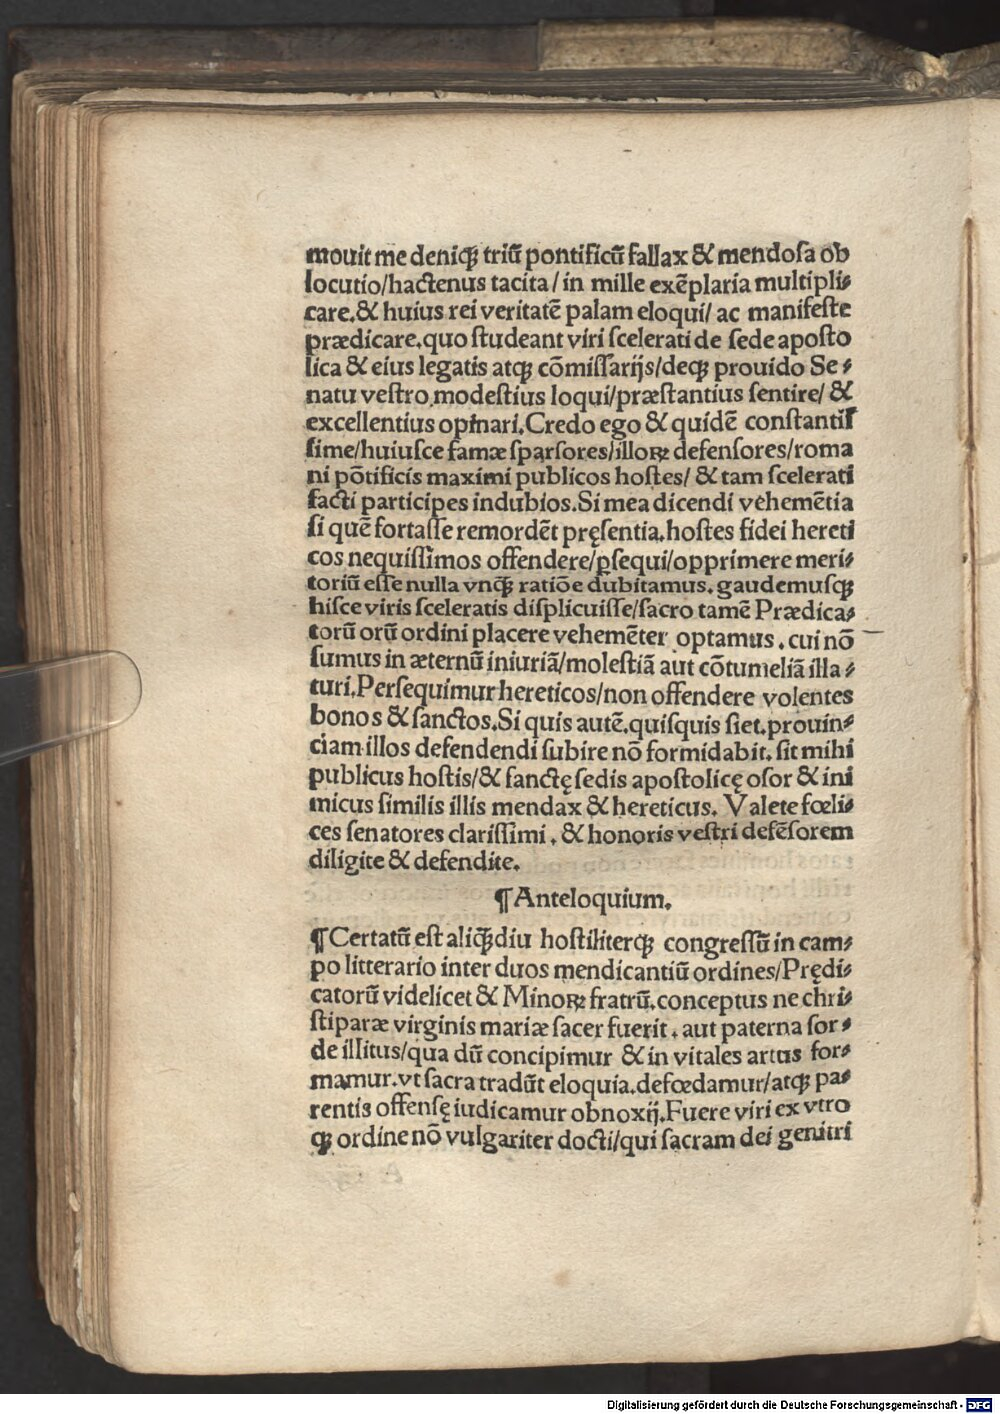 mouit me deniqꝫ triū pontificū fallax & mendoſa ob
locutio/hactenus tacita/in mille exēplaria multipli⸗
care.& huius rei veritatē palam eloqui/ ac manifeſte
prædicare.quo ſtudeant viri ſcelerati de ſede apoſto
lica & eius legatis atqꝫ cōmiſſarijs/deqꝫ prouido Se⸗
natu veſtro modeſtius loqui/præſtantius ſentire/ &
excellentius opinari.Credo ego & quidē conſtantiſ
ſime/huiuſce famæ ſparſores/illoꝝ defenſores/roma
ni pōtificis maximi publicos hoſtes/ & tam ſcelerati
facti participes indubios.Si mea dicendi vehemētia
ſi quē fortaſſe remordēt pręſentia.hoſtes fidei hereti
cos nequiſſimos offendere/ꝑſequi/opprimere meri⸗
toriū eſſe nulla vnqꝫ ratiōe dubitamus.gaudemuſqꝫ
hiſce viris ſceleratis diſplicuiſſe/ſacro tamē Prædica⸗
torū orū ordini placere vehemēter optamus.cui nō
ſumus in æternū iniuriā/moleſtiā aut cōtumeliā illa⸗
turi.Perſequimur hereticos/non offendere volentes
bonos & ſanctos.Si quis autē.quiſquis ſiet.prouin⸗
ciam illos defendendi ſubire nō formidabit.ſit mihi
publicus hoſtis/& ſanctę ſedis apoſtolicę oſor & ini
micus ſimilis illis mendax & hereticus. Valete fœli⸗
ces ſenatores clariſſimi.& honoris veſtri defēſorem
diligite & defendite.
¶Anteloquium.
¶Certatū eſt aliqꝫdiu hoſtiliterqꝫ congreſſū in cam⸗
po litterario inter duos mendicantiū ordines/Prędi⸗
catorū videlicet & Minoꝝ fratrū.conceptus ne chri⸗
ſtiparæ virginis mariæ ſacer fuerit.aut paterna ſor⸗
de illitus/qua dū concipimur & in vitales artus for⸗
mamur.vt ſacra tradūt eloquia.defœdamur/atqꝫ pa⸗
rentis offenſę iudicamur obnoxij.Fuere viri ex vtro
qꝫ ordine nō vulgariter docti/qui ſacram dei genitri
Digitalisierung gefördert durch die Deutsche Forschungsgemeinschaft - DFG